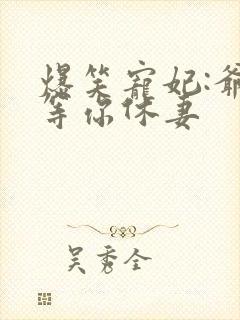 爆笑寵妃:爺
等你休妻
吴秀全